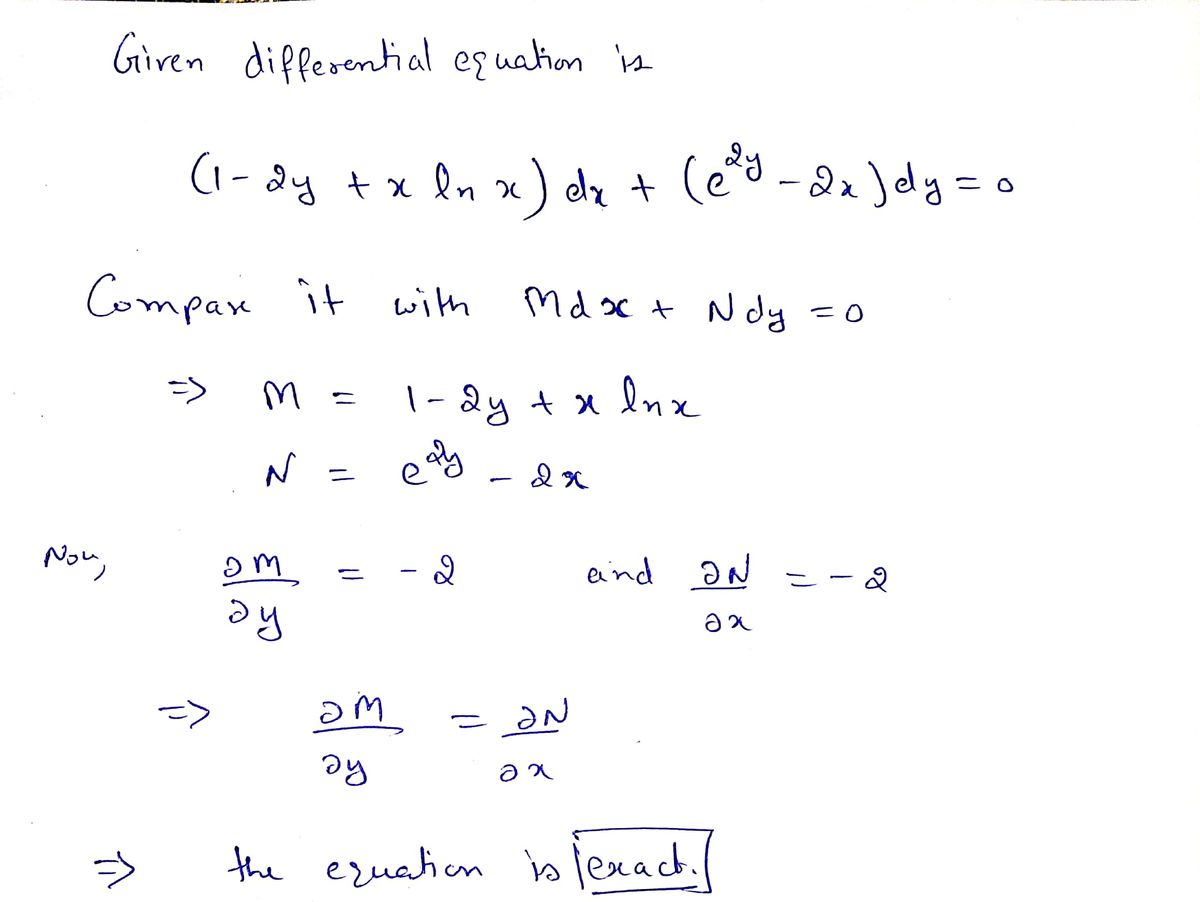 Given differential equation is
(1 - 2y + x ln x) dx + (e^{2y} - 2x) dy = 0
Compare it with Mdx + Ndy = 0
=> M = 1 - 2y + x ln x
N = e^{2y} - 2x
Now, ∂M/∂y = -2 and ∂N/∂x = -2
=> ∂M/∂y = ∂N/∂x
=> the equation is exact.